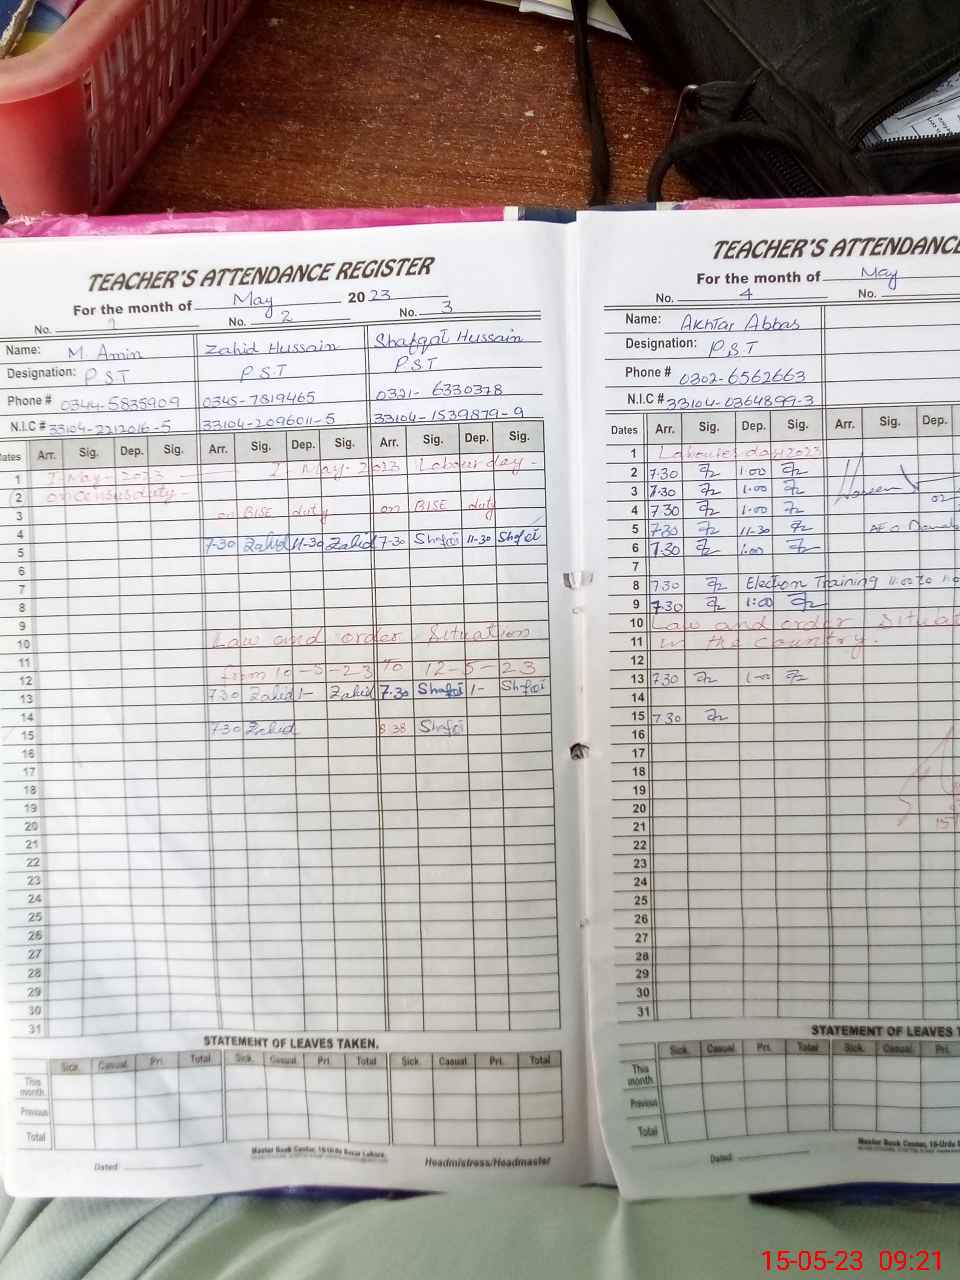 TEACHER'S ATTENDANCE REGISTER
For the month of May 2023
No. 1 No. 2 No. 3
Name: M. Amin Zahid Hussain Shafqat Hussain
Designation: P.S.T P.S.T P.S.T
Phone # 0344-5835909 0345-7819465 0321-6330378
N.I.C # 33104-2212016-5 33104-2096011-5 33104-1539879-9
Dates Arr. Sig. Dep. Sig. Arr. Sig. Dep. Sig. Arr. Sig. Dep. Sig.
1 1-May-2023 1-May-2023 Labour day-
2 on census duty-
3 on BISE duty on BISE duty
4
5 7-30 Zahid 11-30 Zahid 7-30 Shafqi 11-30 Shafqi
6
7
8
9
10 Law and order Situation
11 from 10-5-23 to 12-5-23
12
13 7 30 Zahid 1- Zahid 7.30 Shafqi 1- Shafqi
14
15 7-30 Zahid 8 38 Shafqi
16
17
18
19
20
21
22
23
24
25
26
27
28
29
30
31
STATEMENT OF LEAVES TAKEN.
Sick. Casual. Pri. Total Sick. Casual. Pri. Total Sick. Casual. Pri. Total
This month
Previous
Total
Master Book Center, 16-Urdu Bazar Lahore.
Dated Headmistress/Headmaster
TEACHER'S ATTENDANCE
For the month of May
No. 4 No.
Name: Akhtar Abbas
Designation: P.S.T
Phone # 0302-6562663
N.I.C # 33104-0364899-3
Dates Arr. Sig. Dep. Sig. Arr. Sig. Dep.
1 Labourer day 2023
2 7.30 1:00
3 7.30 1.00
4 7 30 1.00
5 7.30 11-30 AEO
6 7.30 1.00
7
8 7.30 Election Training 11:00 to
9 7.30 1:00
10 Law and order Situa
11 in the Country.
12
13 7.30 1-00
14
15 7 30
16
17
18
19
20
21
22
23
24
25
26
27
28
29
30
31
STATEMENT OF LEAVES T
Sick. Casual. Pri. Total Sick. Casual. Pri.
This month
Previous
Total
Master Book Center, 16-Urdu
Dated
15-05-23 09:21